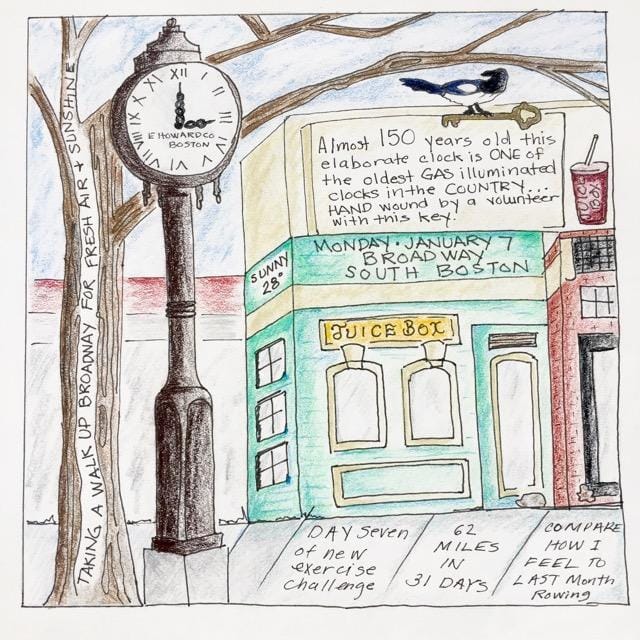 TAKING A WALK UP BROADWAY FOR FRESH AIR + SUNSHINE
XII
E HOWARD CO.
BOSTON
Almost 150 years old this
elaborate clock is ONE of
the oldest GAS illuminated
clocks in the COUNTRY...
HAND wound by a volunteer
with this key.
JUICE
BOX
SUNNY
28°
MONDAY • JANUARY 7
BROADWAY
SOUTH BOSTON
JUICE BOX
DAY Seven
of new
exercise
challenge
62
MILES
IN
31 DAYS
COMPARE
HOW I
FEEL TO
LAST Month
Rowing